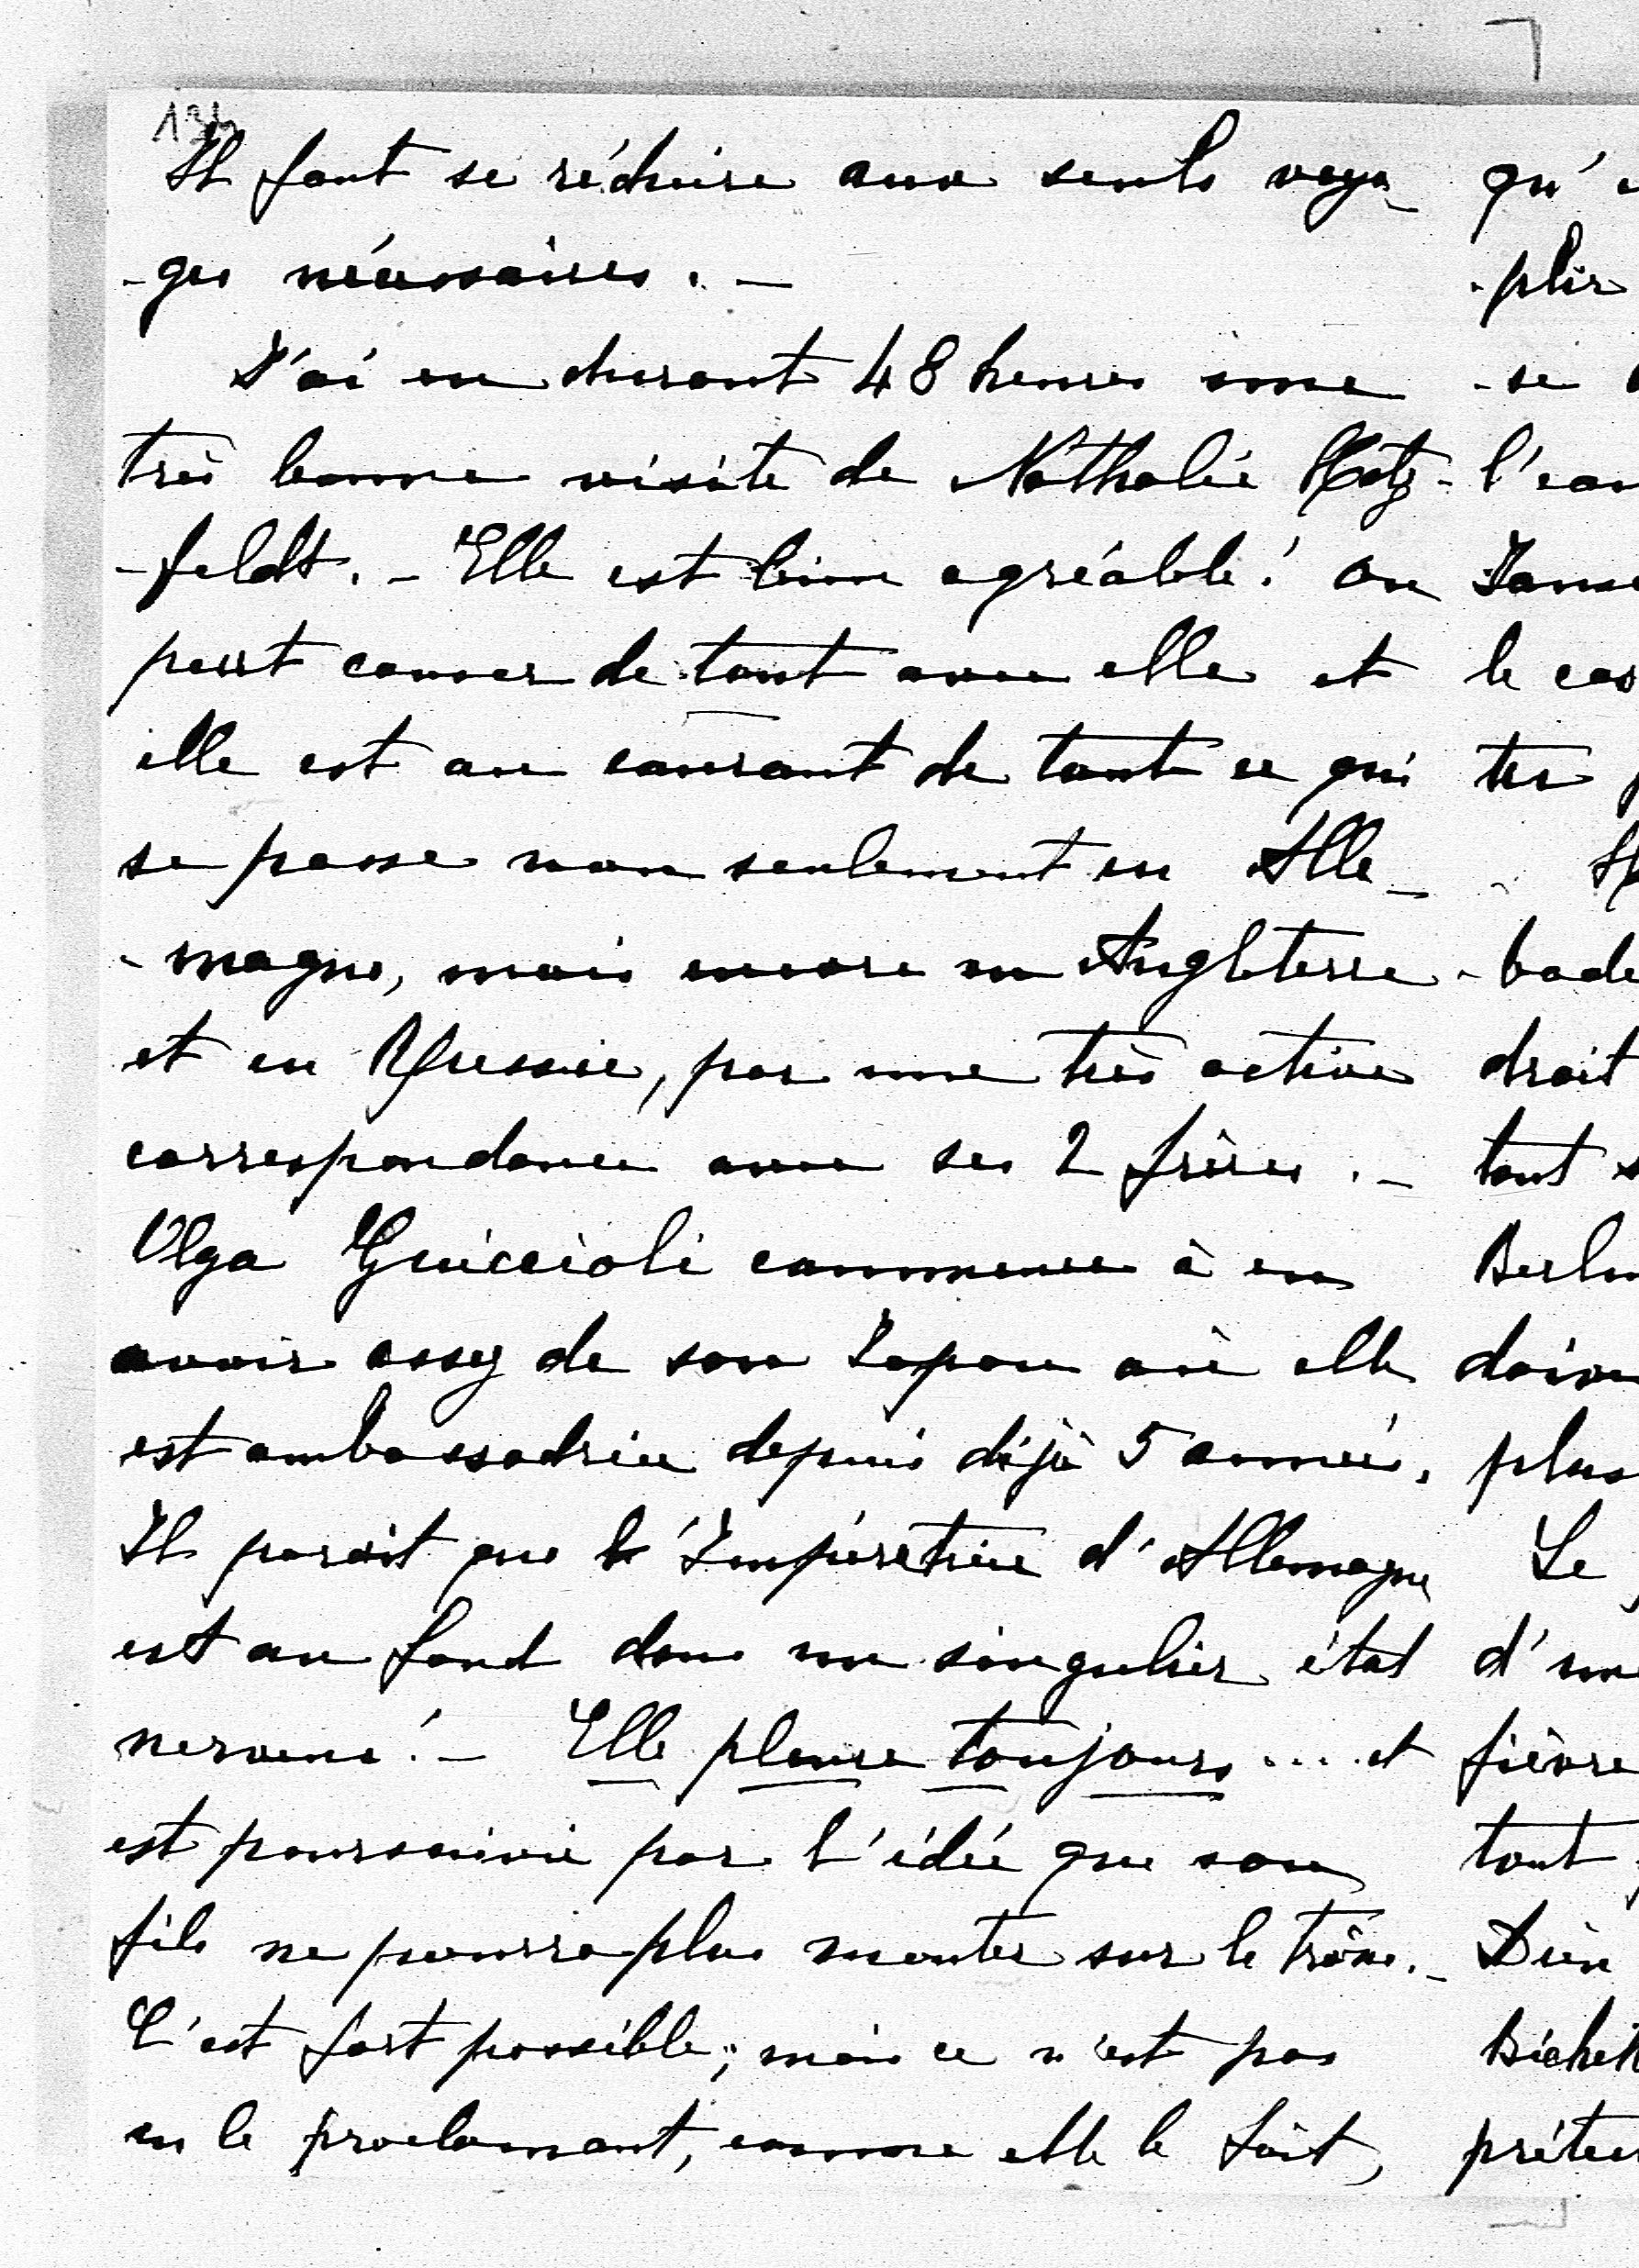 Il faut se réduire aux seuls voya-
-ges nécessaires. -
J'ai eu durant 48 heures une
très bonne visite de Nathalie Hatz-
-feldt. - Elle est bien agréable! On
peut causer de tout avec elle et
elle est au courant de tout ce qui
se passe non seulement en Alle-
-magne, mais encore en Angleterre
et en Russie, par une très active
correspondance avec ses 2 frères. -
Olga Guiccioli commence à en
avoir assez de son Japon où elle
est ambassadrice depuis déjà 5 années.
Il parait que l'Impératrice d'Allemagne
est au fond dans un singulier état
nerveux! - Elle pleure toujours ... et
est poursuivie par l'idée que son
fils ne pourra plus monter sur le trône. -
C'est fort possible; mais ce n'est pas
en le proclamant, comme elle le fait,
qu'
-plir
-se
l'
le
tes
-bade
droit
tout
plus
Le
d'une
fièvre
tout